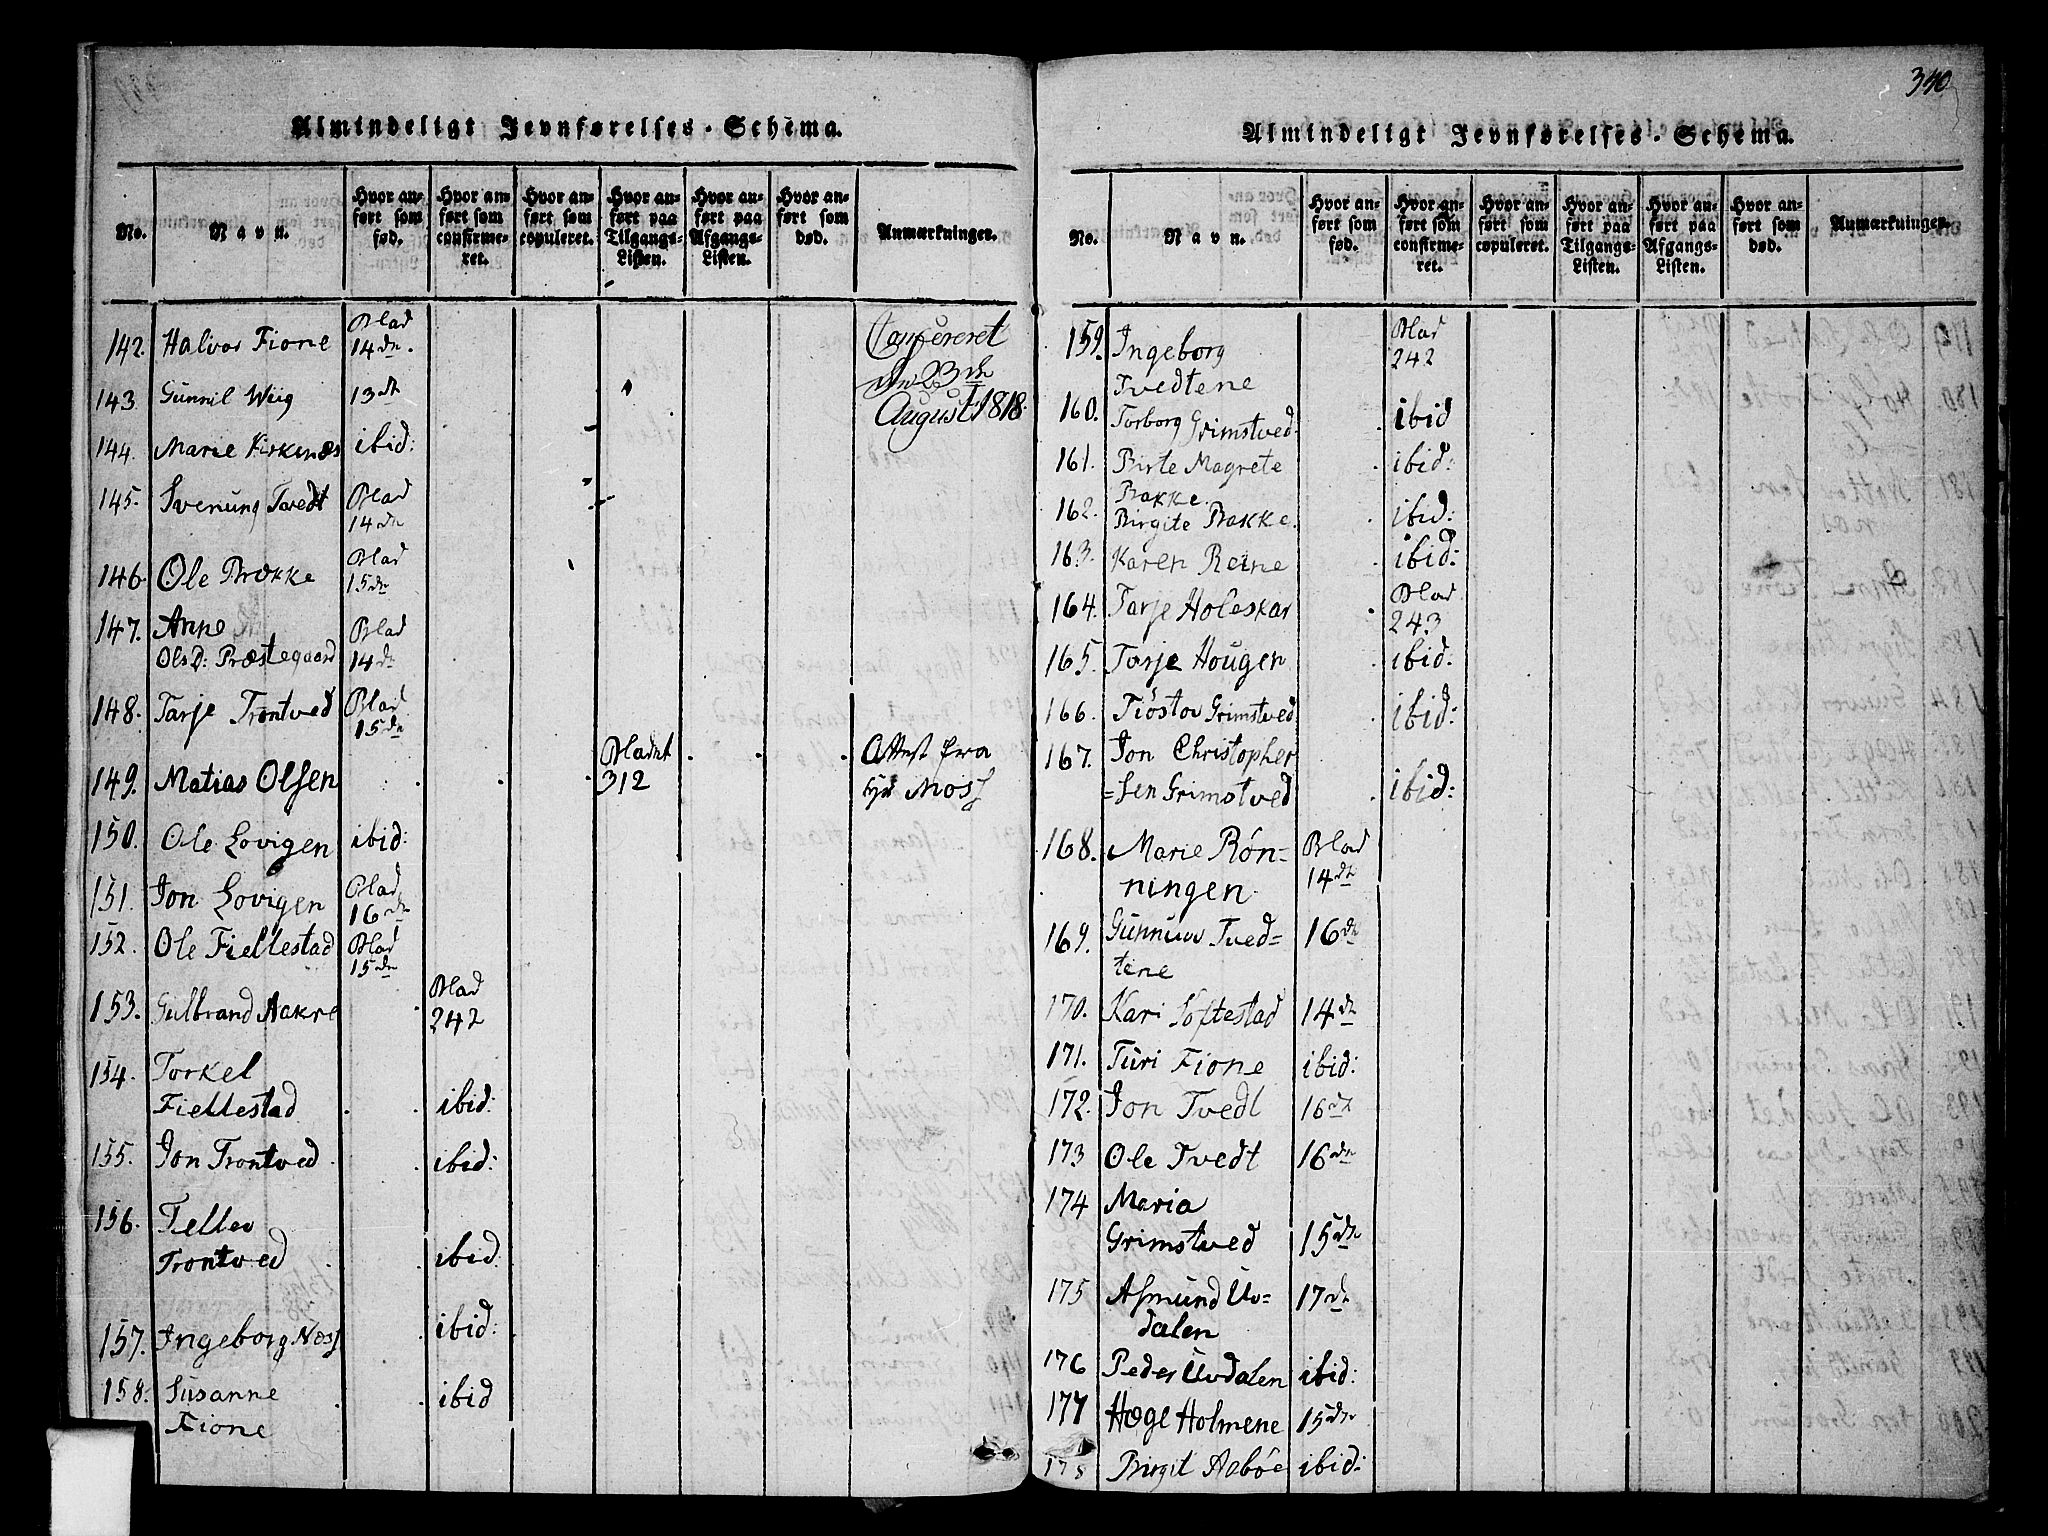 Almindeligt Jevnførelses-Schema.
No.
Navn.
Hvor an-
ført som
fød.
Hvor an-
ført som
confirme-
ret.
Hvor an-
ført som
copuleret.
Hvor an-
ført paa
Tilgangs-
Listen.
Hvor an-
ført paa
Afgangs-
Listen.
Hvor an-
ført som
død.
Anmærkninger.
142. Halvor Fione Blad 14de. Confereret
den 23de
August 1818.
143. Gunnil Wiig 13de
144. Marie Kirkenæs ibid:
145. Svenung Tvedt Blad 14de
146. Ole Brække Blad 15de
147. Anne
Olsd: Præstegaard Blad 14de
148. Tarje Trontved Blad 15de
149. Matias Olsen Bladet 312 Attest fra
Moss
150. Ole Lovigen ibid:
151. Jon Lovigen Blad 16de
152. Ole Fiellestad Blad 15de
153. Gulbrand Aakre Blad 242
154. Torkel
Fiellestad ibid:
155. Jon Trontved ibid:
156. Tellev
Trontved ibid
157. Ingeborg Næss ibid:
158. Susanne
Fione ibid
340
Almindeligt Jevnførelses-Schema.
No.
Navn.
Hvor an-
ført som
fød.
Hvor an-
ført som
confirme-
ret.
Hvor an-
ført som
copuleret.
Hvor an-
ført paa
Tilgangs-
Listen.
Hvor an-
ført paa
Afgangs-
Listen.
Hvor an-
ført som
død.
Anmærkninger.
159. Ingeborg
Tvedtene Blad 242
160. Torborg Grimstved ibid
161. Birte Magrete
Bakke. ibid:
162. Birgite Bakke. ibid:
163. Karen Reine ibid:
164. Tarje Holeskar Blad 243
165. Tarje Hougen ibid:
166. Tiöstov Grimstved ibid:
167. Jon Christopher
=sen Grimstved ibid:
168. Marie Rön=
ningen Blad 14de
169. Gunnuv Tved=
tene 16de
170. Kari Softestad 14de
171. Turi Fione ibid:
172. Jon Tvedt 16de
173 Ole Tvedt 16de
174 Maria
Grimstved 15de
175 Asmund Uv=
dalen 17de
176 Peder Uvdalen ibid:
177 Hæge Holmene 15de
178 Birgit Aasböe ibid: